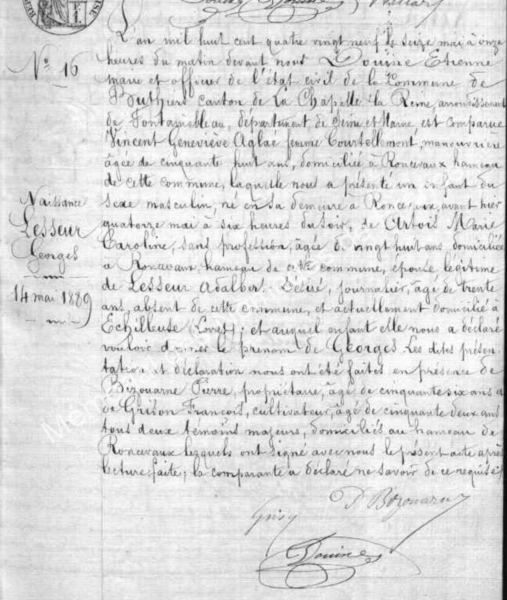 L'an mil huit cent quatre vingt neuf le seize mai à onze
heures du matin devant nous Douine Etienne
maire et officier de l'état civil de la Commune de
Buthiers canton de La Chapelle la Reine, arrondissement
de Fontainebleau, département de Seine et Marne, est comparue
Vincent Geneviève Aglaé femme Courtellemont, manouvrière
âgée de cinquante huit ans, domiciliée à Roncevaux hameau
de cette commune, laquelle nous a présenté un enfant du
sexe masculin, né en sa demeure à Roncevaux, avant hier
quatorze mai à six heures du soir, de Artois Marie
Caroline, sans profession, âgée de vingt huit ans domiciliée
à Roncevaux hameau de cette commune, épouse légitime
de Lesseur Adalber Désiré, journalier, âgé de trente
ans, absent de cette commune, et actuellement domicilié à
Echilleuse (Loiret); et auquel enfant elle nous a déclaré
vouloir donner le prénom de Georges Les dites présen-
tation et déclaration nous ont été faites en présence de
Bizouarne Pierre, propriétaire, âgé de cinquante six ans &
de Grison François, cultivateur, âgé de cinquante deux ans
tous deux témoins majeurs, domiciliés au hameau de
Roncevaux lesquels ont signé avec nous le présent acte après
lecture faite; la comparante a déclaré ne savoir de ce requise
N° 16
Naissance
Lesseur
Georges
14 mai 1889
Douine